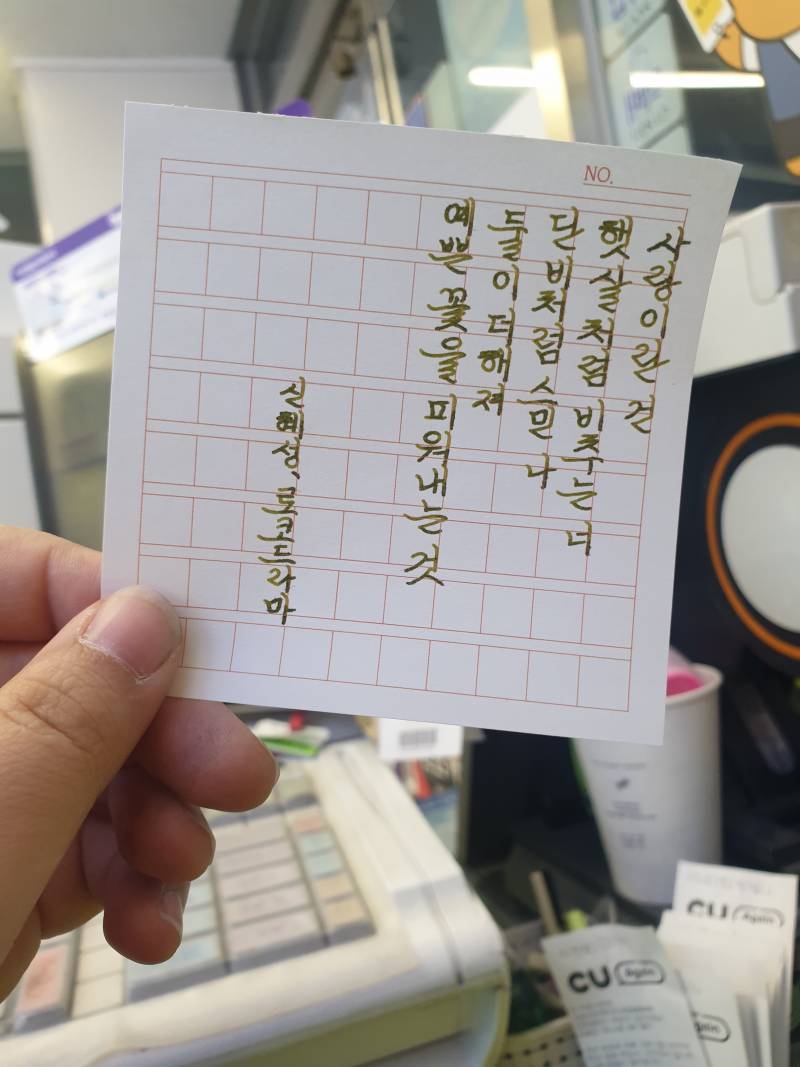 NO.
사랑이란 건
햇살처럼 비추는 너
단비처럼 스민 나
둘이 더해져
예쁜 꽃을 피워내는 것
신혜성, 로코드라마
CU
CU